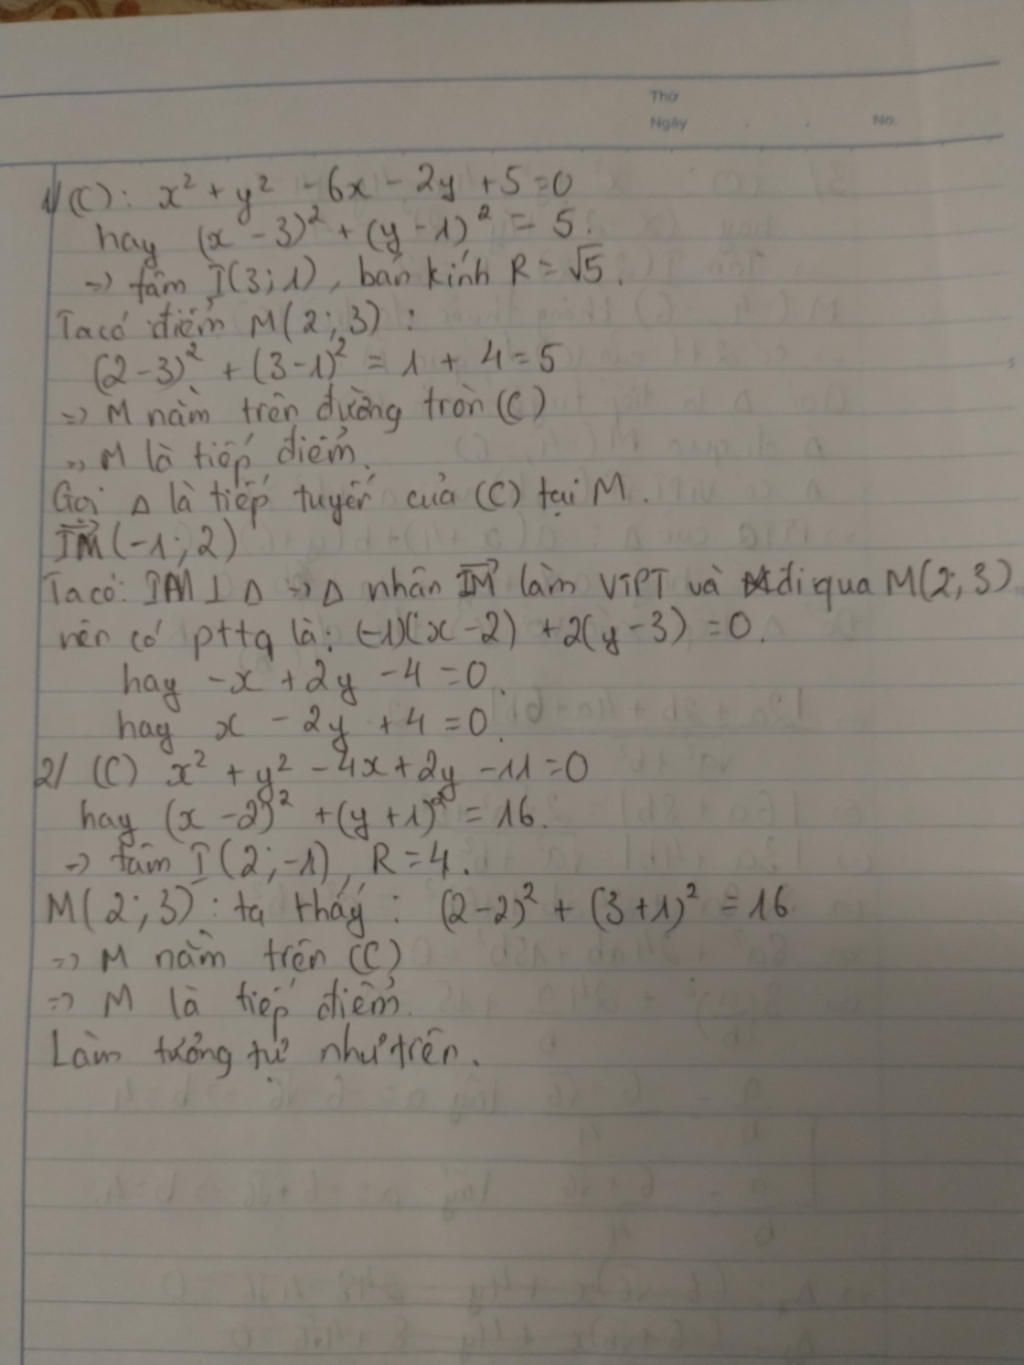 Thứ
Ngày . . No.
1/ (C): x² + y² - 6x - 2y + 5 = 0
hay (x - 3)² + (y - 1)² = 5.
=> tâm I(3; 1), bán kính R = √5.
Ta có điểm M(2; 3) :
(2-3)² + (3-1)² = 1 + 4 = 5
=> M nằm trên đường tròn (C)
=> M là tiếp điểm.
Gọi Δ là tiếp tuyến của (C) tại M.
IM⃗ (-1; 2)
Ta có: IM ⊥ Δ => Δ nhận IM⃗ làm VTPT và đi qua M(2; 3)
nên có pttq là: (-1)(x - 2) + 2(y - 3) = 0.
hay -x + 2y - 4 = 0.
hay x - 2y + 4 = 0.
2/ (C) x² + y² - 4x + 2y - 11 = 0
hay (x - 2)² + (y + 1)² = 16.
=> tâm I(2; -1), R = 4.
M(2; 3) : ta thấy : (2-2)² + (3+1)² = 16
=> M nằm trên (C)
=> M là tiếp điểm.
Làm tương tự như trên.